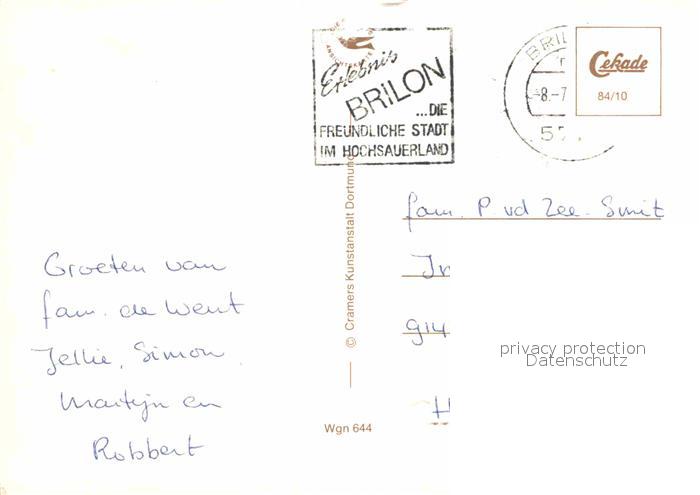 Erlebnis
BRILON
...DIE
FREUNDLICHE STADT
IM HOCHSAUERLAND
BRIL
-8.-7
57
Cekade
84/10
© Cramers Kunstanstalt Dortmund
Wgn 644
Groeten van
fam. de Went
Jellie, Simon
Martijn en
Robbert
fam. P. vd Zee - Smit
914
H
privacy protection
Datenschutz